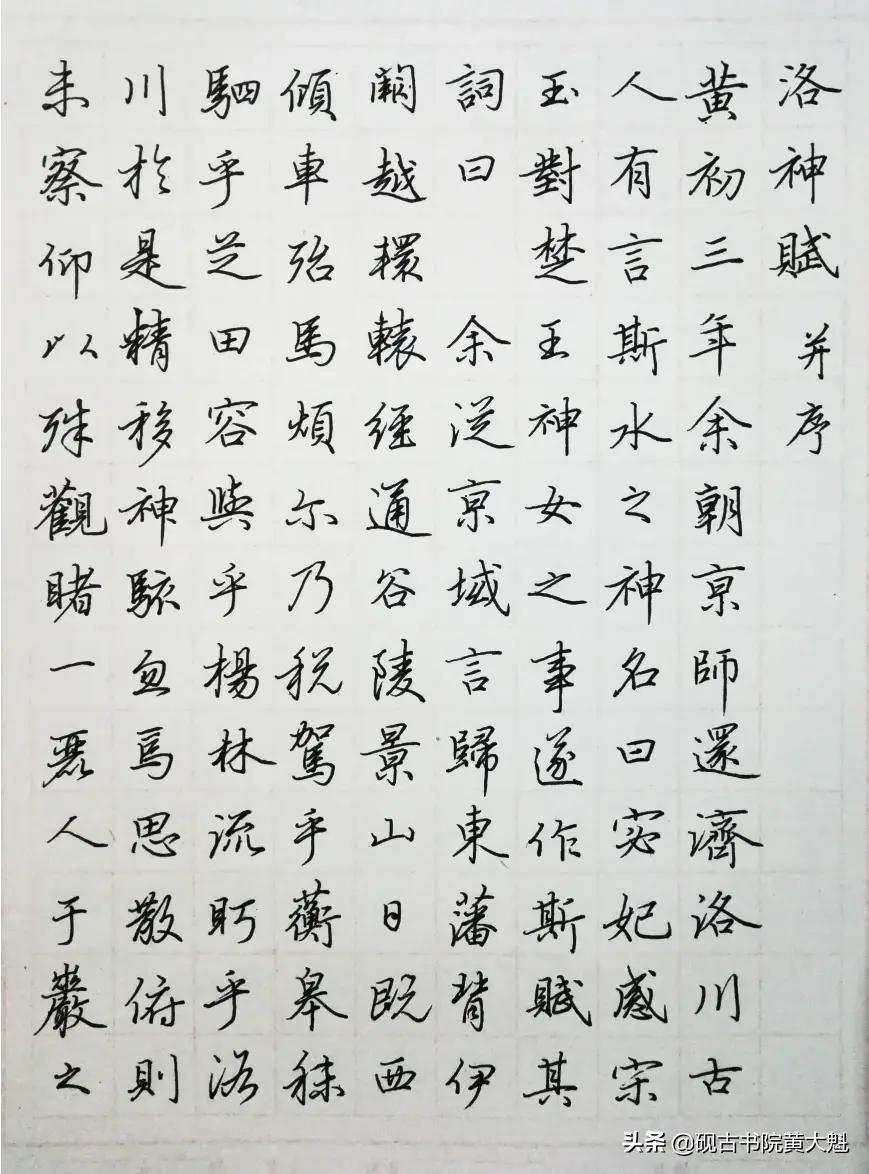 洛神賦并序
黄初三年余朝京師還濟洛川古
人有言斯水之神名曰宓妃感宋
玉對楚王神女之事遂作斯賦其
詞曰余從京域言歸東藩背伊
闕越轘轅經通谷陵景山日既西
傾車殆馬煩尓乃税駕乎蘅皋秣
駟乎芝田容與乎楊林流眄乎洛
川於是精移神駭忽焉思散俯則
未察仰以殊觀睹一麗人于巖之
头条 @砚古书院黄大魁